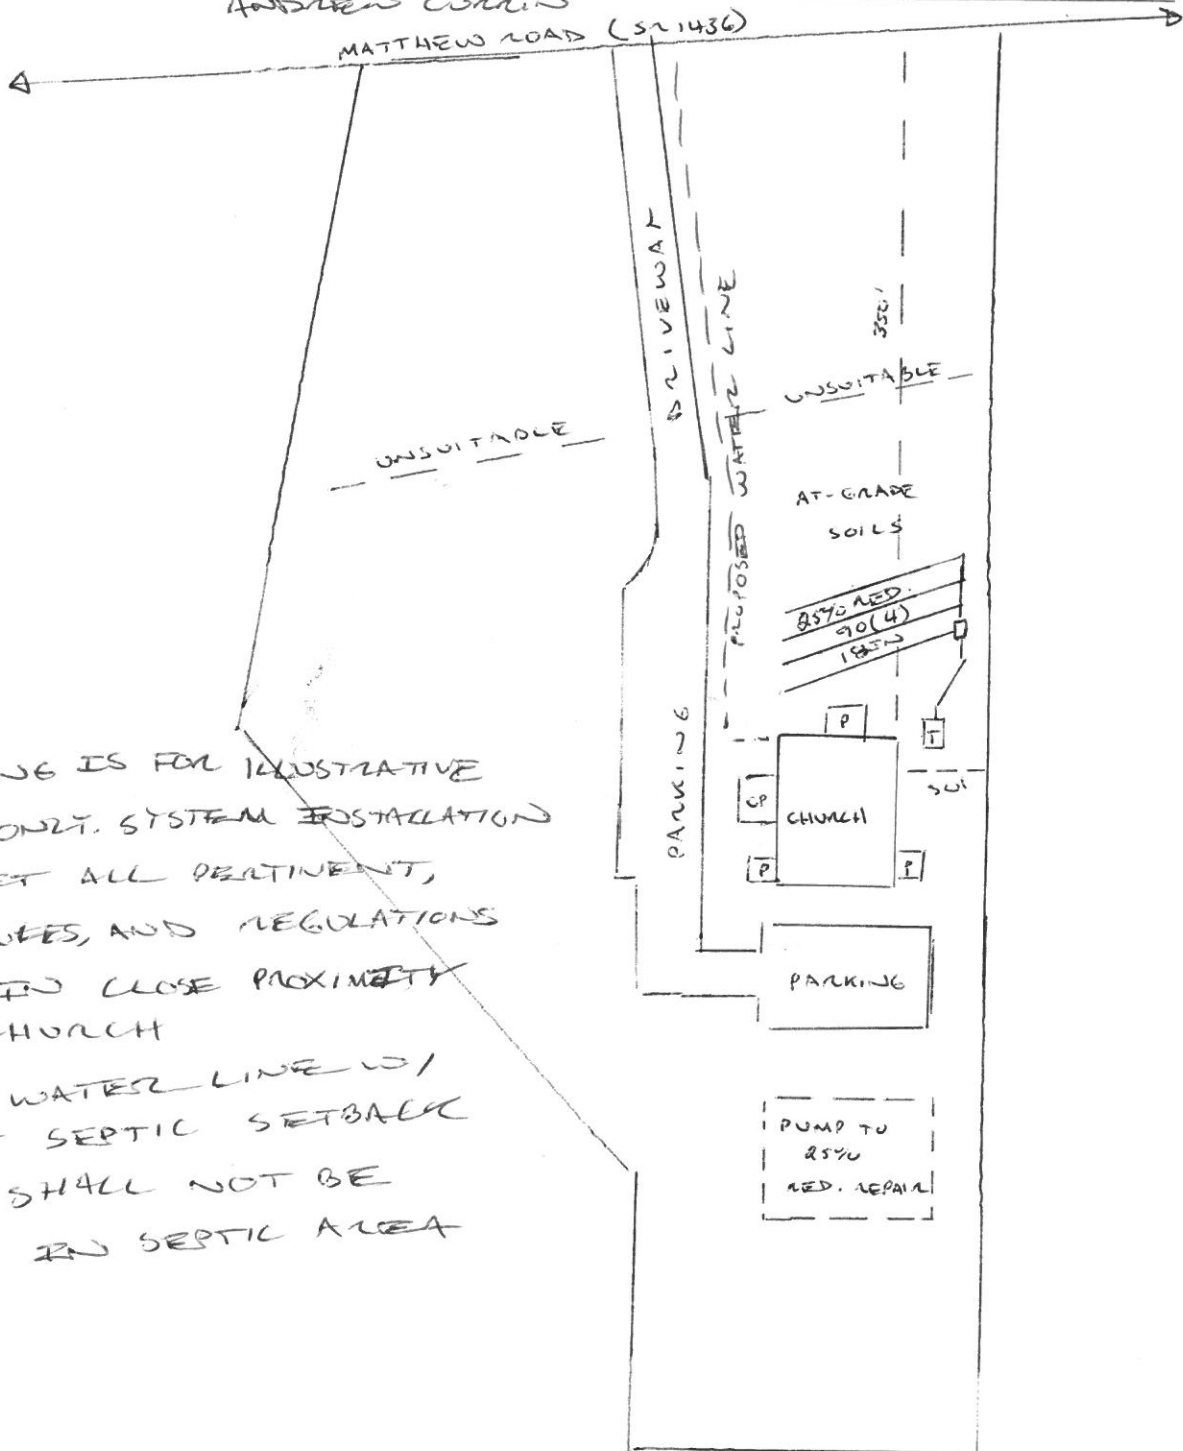 ANDREW CURRIN
MATTHEW ROAD (SR 1436)
DRIVEWAY
PROPOSED WATER LINE
350'
UNSUITABLE
UNSUITABLE
AT-GRADE
SOILS
25% RED.
90(4)
18IN
P
T
50'
CP
CHURCH
P
P
PARKING
PARKING
PUMP TO
25%
RED. REPAIR
IS FOR ILLUSTRATIVE
ONLY. SYSTEM INSTALLATION
ALL PERTINENT,
AND REGULATIONS
IN CLOSE PROXIMITY
WATER LINE W/
SEPTIC SETBACK
SHALL NOT BE
IN SEPTIC AREA